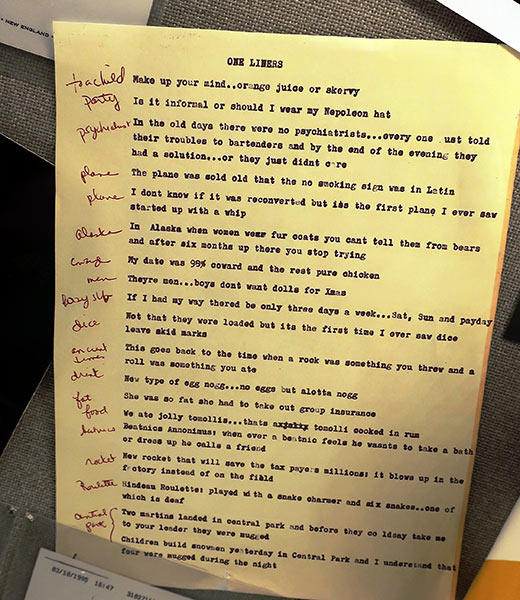 • NEW ENGLAND •
ONE LINERS
to a child Make up your mind..orange juice or skervy
party Is it informal or should I wear my Nepoleon hat
psychiatrist In the old days there were no psychiatrists...every one just told
their troubles to bartenders and by the end of the evening they
had a solution...or they just didnt care
plane The plane was sold old that the no smoking sign was in Latin
plane I dont know if it was reconverted but its the first plane I ever saw
started up with a whip
Alaska In Alaska when women wear fur coats you cant tell them from bears
and after six months up there you stop trying
My date was 99% coward and the rest pure chicken
men Theyre men...boys dont want dolls for Xmas
If I had my way thered be only three days a week...Sat, Sun and payday
dice Not that they were loaded but its the first time I ever saw dice
leave skid marks
ancient times This goes back to the time when a rock was something you threw and a
roll was something you ate
drink New type of egg nogg...no eggs but alotta nogg
fat She was so fat she had to take out group insurance
food We ate jolly tomollis...thats tomolli cooked in rum
Beatnics Annonimus; when ever a beatnic feels he wasnts to take a bath
or dress up he calls a friend
rocket New rocket that will save the tax payers millions; it blows up in the
factory instead of on the field
Roulette Hindeau Roulette: played with a snake charmer and six snakes..one of
which is deaf
central park Two martins landed in central park and before they co ldsay take me
to your leader they were mugged
Children build snowmen yesterday in Central Park and I understand that
four were mugged during the night
03/10/1995 16:47